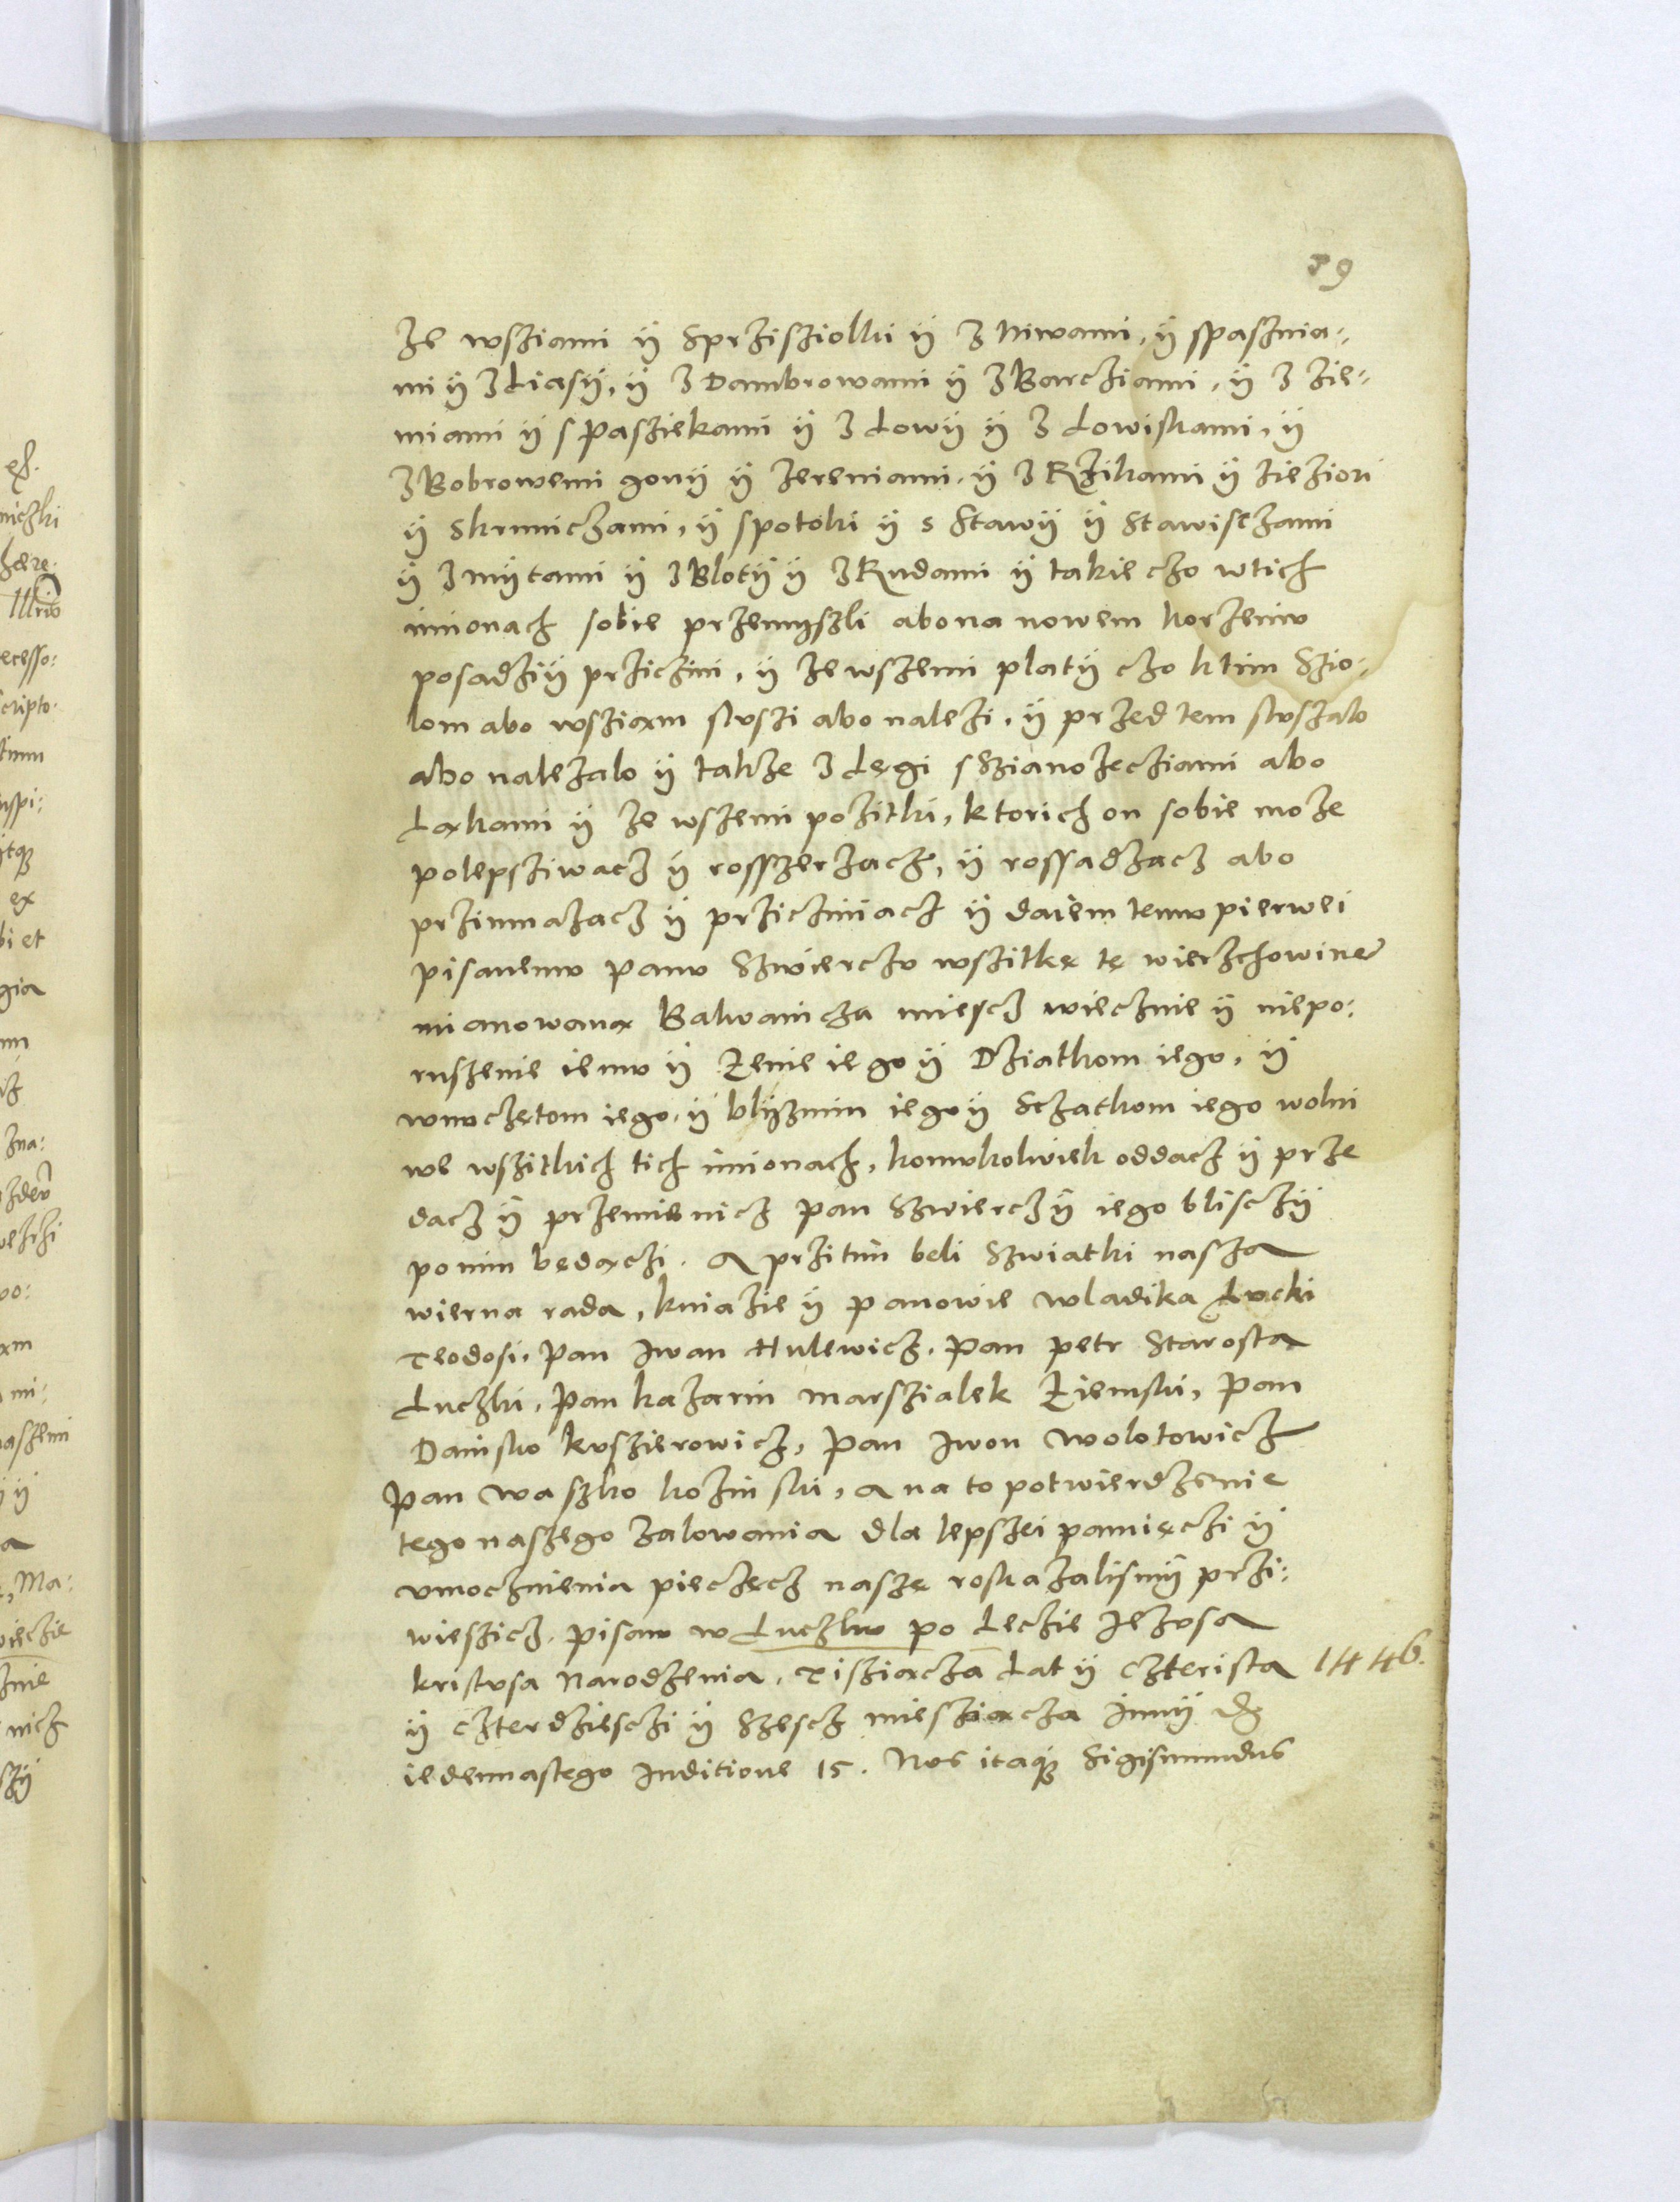 89
ze wsziami ÿ Sprzisziolki ÿ z Niwami, ÿ spasznia-
mi ÿ z Liasÿ, ÿ z Dambrowami ÿ z Barcziami, ÿ z zie-
miami ÿ s Pasziekami ÿ z Lowÿ ÿ z Lowiskami, ÿ
z Bobrowemi gonÿ ÿ zereniami, ÿ z Rzikami ÿ zieziori
ÿ Skrinniczami, ÿ spotoki ÿ s Stawÿ ÿ Stawisczami
ÿ z mÿtami ÿ z Blotÿ ÿ z Rudami ÿ takie czo wtich
imionach sobie przemyszli abo na nowem korzeniv
posadziÿ prziczini, ÿ ze wszemi platÿ czo ktim Szio-
lom abo wsziam slvszi abo nalezi, ÿ przed tem slvszalo
abo nalezalo ÿ takze z Lęgi s Szianozecziami abo
Ląkami ÿ ze wszemi pozitki, ktorich on sobie moze
polepsziwacz ÿ rosszerzacz, ÿ rossadzacz abo
przinmazacz ÿ prziczïniacz ÿ daiem temv pierwei
pisanemv panv Szwierczv wszitkę tę wierzchowinę
mianowaną Bakvanicza miescz wiecznie ÿ niepo-
ruszenie iemv ÿ Zenie iego ÿ Dziatkom iego, ÿ
wnvczętom iego, ÿ blÿznim iego ÿ Sczatkom iego wolni
we wszitkich tich imionach, komvkolwiek oddacz ÿ prze
dacz ÿ przemienicz pan Szwiercz ÿ iego blisczÿ
po nim będączi. A przitim beli Szwiatki nasza
wierna rada, kniazie ÿ panowie wladika Lvcki
Teodosi, Pan Iwan Hulewicz, Pan Petr Starosta
Luczki, Pan kazarin marszialek Ziemski, Pan
Danisko kvszierowicz, Pan Iwon Wolotowicz
Pan Waszko kozinski, A na to potwierdzenie
tego naszego zalowania dla lepszei pamięczi ÿ
vmocznienia pieczęcz naszę roskazalismÿ przi-
wieszicz. Pisan w Luczku po Leczie Iezvsa
kristvsa Narodzenia, Tisziącza Lat ÿ Czterista 1446.
ÿ czterdziesczi ÿ Szescz miesziącza Iunÿ
iedennastego Inditione 15. Nos itaque Sigismundus